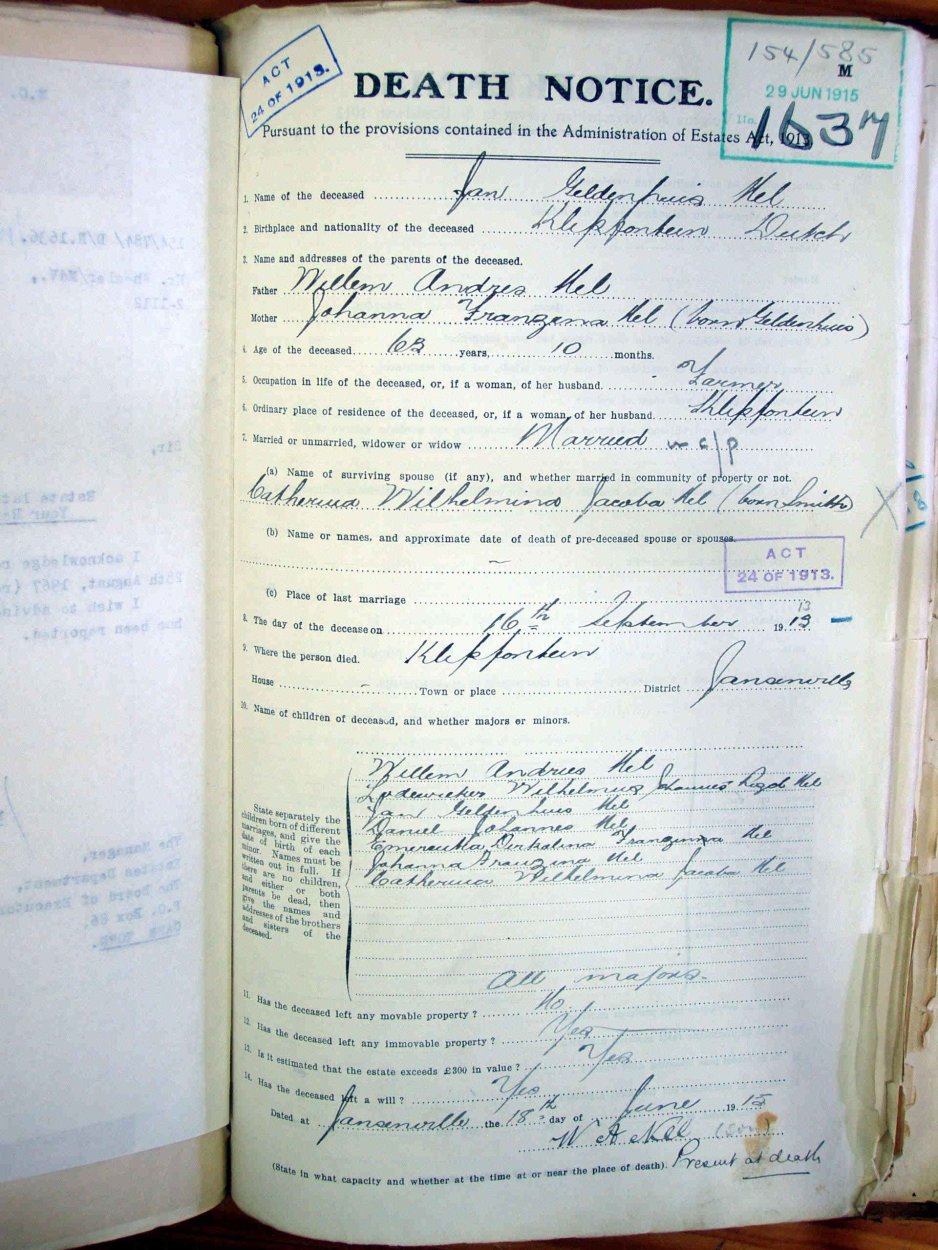 ACT
24 OF 1913.
154/585
M
29 JUN 1915
1637
DEATH NOTICE.
Pursuant to the provisions contained in the Administration of Estates Act, 1913.
1. Name of the deceased Jan Geldenhuis Nel
2. Birthplace and nationality of the deceased Klipfontein Dutch
3. Name and addresses of the parents of the deceased.
Father Willem Andres Nel
Mother Johanna Franzena Nel (born Geldenhuis)
4. Age of the deceased 63 years, 10 months.
5. Occupation in life of the deceased, or, if a woman, of her husband. Farmer
6. Ordinary place of residence of the deceased, or, if a woman, of her husband. Klipfontein
7. Married or unmarried, widower or widow Married in c/p
(a) Name of surviving spouse (if any), and whether married in community of property or not.
Catherina Wilhelmina Jacoba Nel (born Smith)
(b) Name or names, and approximate date of death of pre-deceased spouse or spouses.
ACT
24 OF 1913.
(c) Place of last marriage
13
8. The day of the decease on 16th September 1913
9. Where the person died. Klipfontein
House Town or place District Jansenville
10. Name of children of deceased, and whether majors or minors.
State separately the
children born of different
marriages, and give the
date of birth of each
minor. Names must be
written out in full. If
there are no children,
and either or both
parents be dead, then
give the names and
addresses of the brothers
and sisters of the
deceased.
Willem Andries Nel
Lodewickes Wilhelmus Johannes Nel
Jan Geldenhuis Nel
Daniel Johannes Nel
Franzina Nel
Johanna Franzina Nel
Catherina Wilhelmina Jacoba Nel
All majors.
11. Has the deceased left any movable property? No
12. Has the deceased left any immovable property? Yes
13. Is it estimated that the estate exceeds £300 in value? Yes
14. Has the deceased left a will? Yes
Dated at Jansenville the 18th day of June 1915
W A Nel (son)
(State in what capacity and whether at the time at or near the place of death). Present at death